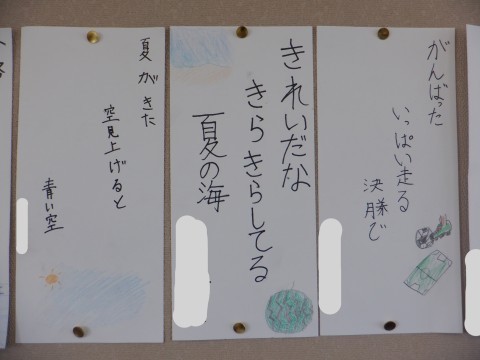 がんばった
いっぱい走る
決勝で
きれいだな
きらきらしてる
夏の海
夏がきた
空見上げると
青い空